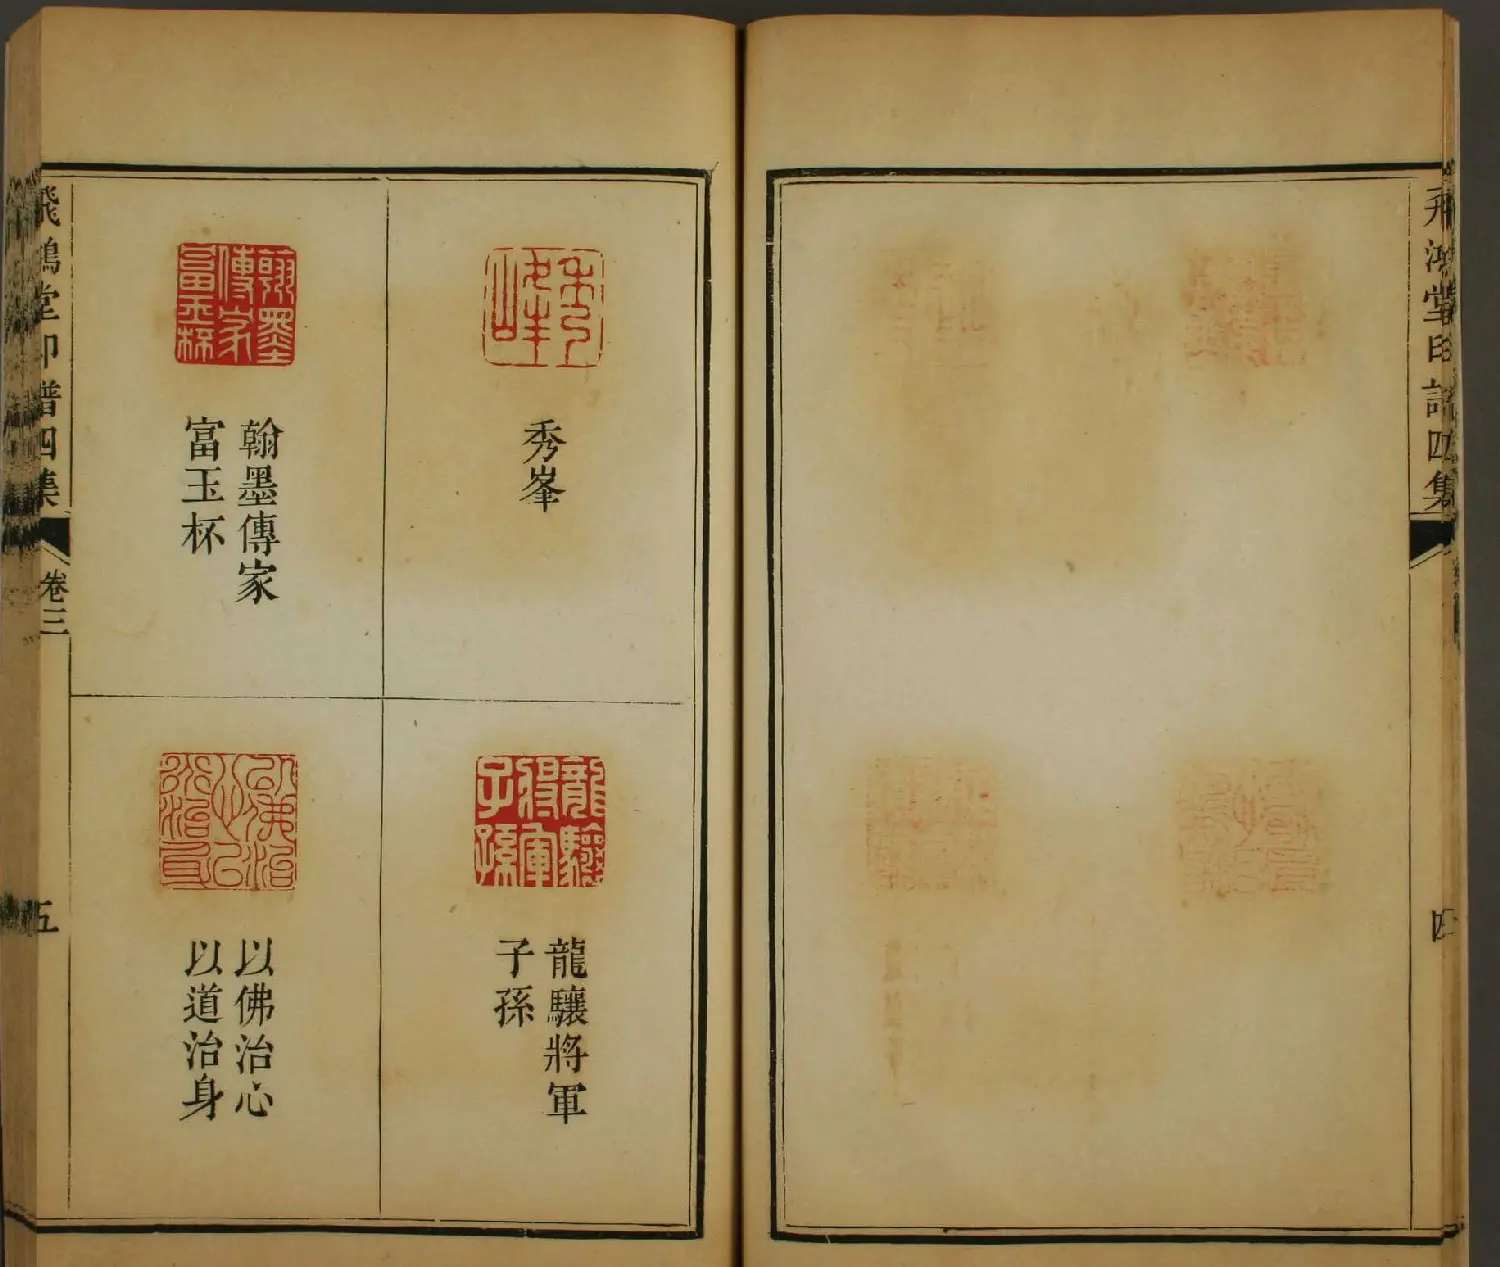 飛鴻堂印譜四集
四
秀峯
龍驤將軍
子孫
翰墨傳家
富玉杯
以佛治心
以道治身
飛鴻堂印譜四集
卷三
五